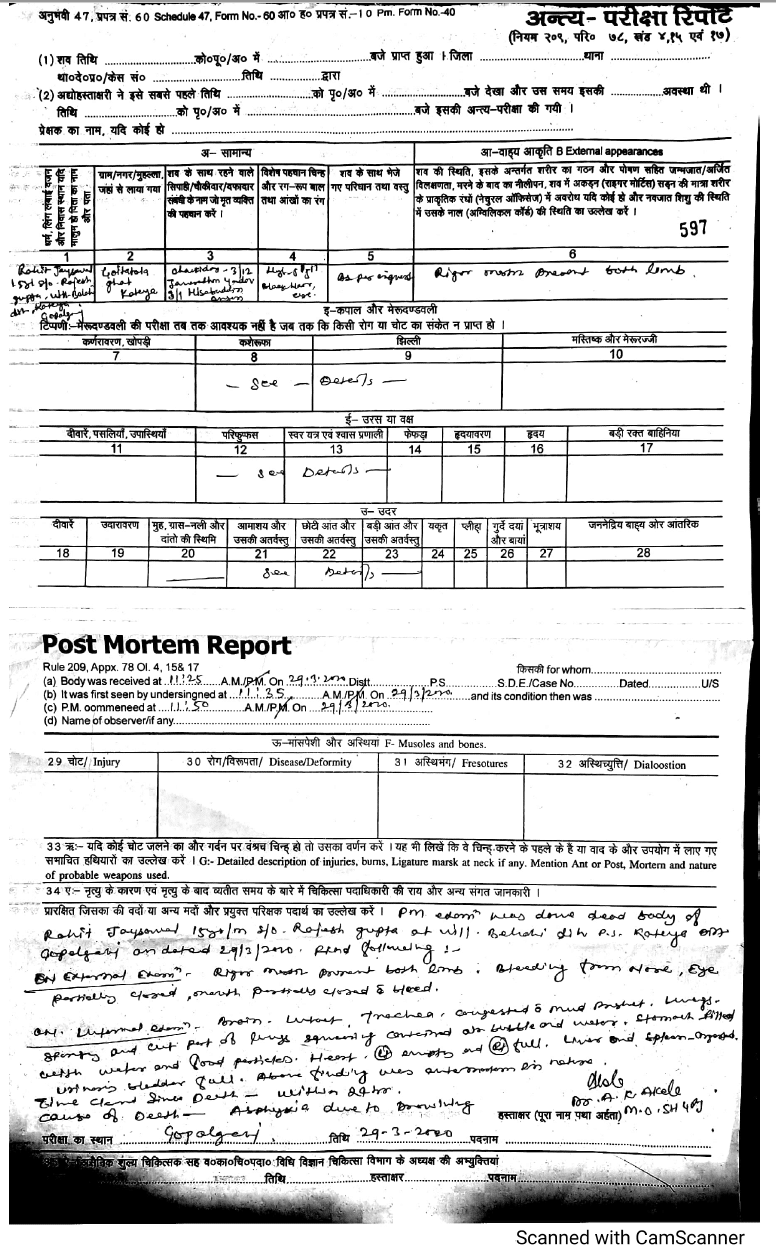 अनुभवी 47, प्रपत्र सं. 60 Schedule 47, Form No.- 60 आ० ह० प्रपत्र सं.-10 Pm. Form No.-40
अन्त्य- परीक्षा रिपोर्ट
(नियम २०९, परि० ७८, खंड ४,१५ एवं १७)
(1) शव तिथि को०पू०/अ० में बजे प्राप्त हुआ । जिला थाना
था०दे०प्र०/केस सं० तिथि द्वारा
(2) अद्योहस्ताक्षरी ने इसे सबसे पहले तिथि को पृ०/अ० में बजे देखा और उस समय इसकी अवस्था थी ।
तिथि को पृ०/अ० में बजे इसकी अन्त्य-परीक्षा की गयी ।
प्रेक्षक का नाम, यदि कोई हो
अ– सामान्य
आ–वाह्य आकृति B External appearances
धर्म, लिंग लंबाई वजन और निवास स्थान यदि मालुम हो पिता का नाम और पता
ग्राम/नगर/मुहल्ला, जहां से लाया गया
शव के साथ रहने वाले सिपाही/चौकीदार/दफादार संबंधी के नाम जो मृत व्यक्ति की पहचान करें ।
विशेष पहचान चिन्ह और रंग–रूप बाल तथा आंखों का रंग
शव के साथ भेजे गए परिधान तथा वस्तु
शव की स्थिति, इसके अन्तर्गत शरीर का गठन और पोषण सहित जन्मजात/अर्जित विलक्षणता, मरने के बाद का नीलीपन, शव में अकड़न (राइगर मोर्टिस) सड़न की मात्रा शरीर के प्राकृतिक रंधों (नेचुरल ऑफिसेज) में अवरोध यदि कोई हो और नवजात शिशु की स्थिति में उसके नाल (अम्विलिकल कॉर्ड) की स्थिति का उल्लेख करें ।
597
1 2 3 4 5 6
Rohit Jaysowal 15yr s/o- Rajesh gupta, Kateya Gopalgunj
ghat Kateya
chaukidar - 3/12
Black Hair,
As per inquest
Rigor mortis present both limb.
इ–कपाल और मेरूदण्डवली
टिप्पणी:– मेरूदण्डवली की परीक्षा तब तक आवश्यक नहीं है जब तक कि किसी रोग या चोट का संकेत न प्राप्त हो ।
कर्णरावरण, खोपड़ी कशेरूका झिल्ली मस्तिष्क और मेरूरज्जी
7 8 9 10
— See — Details —
ई– उरस या वक्ष
दीवारें, पसलियाँ, उपास्थियाँ परिफुफ्फस स्वर यत्र एवं श्वास प्रणाली फेफड़ा हृदयावरण हृदय बड़ी रक्त बाहिनिया
11 12 13 14 15 16 17
— See Details —
उ– उदर
दीवारें उदारावरण मुह, ग्रास-नली और दांतो की स्थिमि आमाशय और उसकी अतर्वस्तु छोटी आंत और उसकी अतर्वस्तु बड़ी आंत और उसकी अतर्वस्तु यकृत प्लीहा गुर्दे दयां और बायां भूत्राशय जननेद्रिय बाह्य ओर आंतरिक
18 19 20 21 22 23 24 25 26 27 28
See Details —
Post Mortem Report
Rule 209, Appx. 78 Ol. 4, 15& 17
किसकी for whom
(a) Body was received at 11:25 A.M./P.M. On 29.3.2020 Distt. P.S. S.D.E./Case No. Dated U/S
(b) It was first seen by undersingned at 11:35 A.M./P.M. On 29/3/2020 and its condition then was
(c) P.M. oommeneed at 11:50 A.M./P.M. On 29/3/2020
(d) Name of observer/if any
ऊ–मांसपेशी और अस्थियां F- Musoles and bones.
29 चोट/ Injury 30 रोग/विरूपता/ Disease/Deformity 31 अस्थिमंग/ Fresotures 32 अस्थिच्युत्ति/ Dialoostion
33 ऋ:– यदि कोई चोट जलने का और गर्दन पर वंश्रच चिन्ह हो तो उसका वर्णन करें । यह भी लिखें कि वे चिन्ह-करने के पहले के है या वाद के और उपयोग में लाए गए
समाचित हथियारों का उल्लेख करें । G:- Detailed description of injuries, burns, Ligature marsk at neck if any. Mention Ant or Post, Mortem and nature
of probable weapons used.
34 ए:– मृत्यु के कारण एवं मृत्यु के बाद व्यतीत समय के बारे में चिकित्सा पदाधिकारी की राय और अन्य संगत जानकारी ।
प्रारक्षित जिसका की वदों या अन्य मदों और प्रयुक्त परिक्षक पदार्थ का उल्लेख करें । PM examn was done dead body of
Rohit Jaysowal 15yr/m s/o. Rajesh gupta at vill. Belahi dih P.S. Kateya Dist-
Gopalganj on dated 29/3/2020. Find following :-
On External Examn- Rigor mortis present both limb. Bleeding from Nose, Eye
partially closed, mouth partially closed & bleed.
On. Internal examn- Brain- Intact, Trachea- congested & mud present. Lungs-
spongy and cut part of lungs squeezing contained air bubble and water. Stomach filled
with water and food particles. Heart- empty and full. Liver and Spleen- congested.
Urinary bladder full. Above finding was antemortem in nature.
Time elapsed since Death - within 24 hr.
Cause of Death — Asphyxia due to Drowning
Dr. A. K. Akela
हस्ताक्षर (पूरा नाम पथा अर्हता) M.O. SH
परीक्षा का स्थान Gopalganj तिथि 29-3-2020 पदनाम
शुल्य चिकित्सक सह व०का०चि०पदा० विधि विज्ञान चिकित्सा विभाग के अध्यक्ष की अभ्युक्तियां
तिथि हस्ताक्षर पदनाम
Scanned with CamScanner